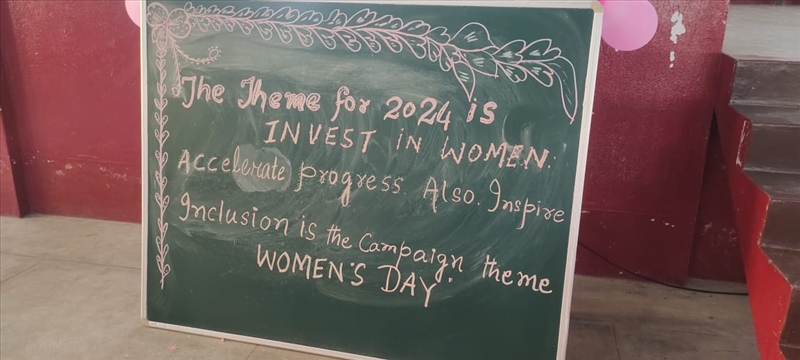 The Theme for 2024 is
INVEST IN WOMEN.
Accelerate progress. Also. Inspire
Inclusion is the Campaign theme
WOMEN'S DAY.